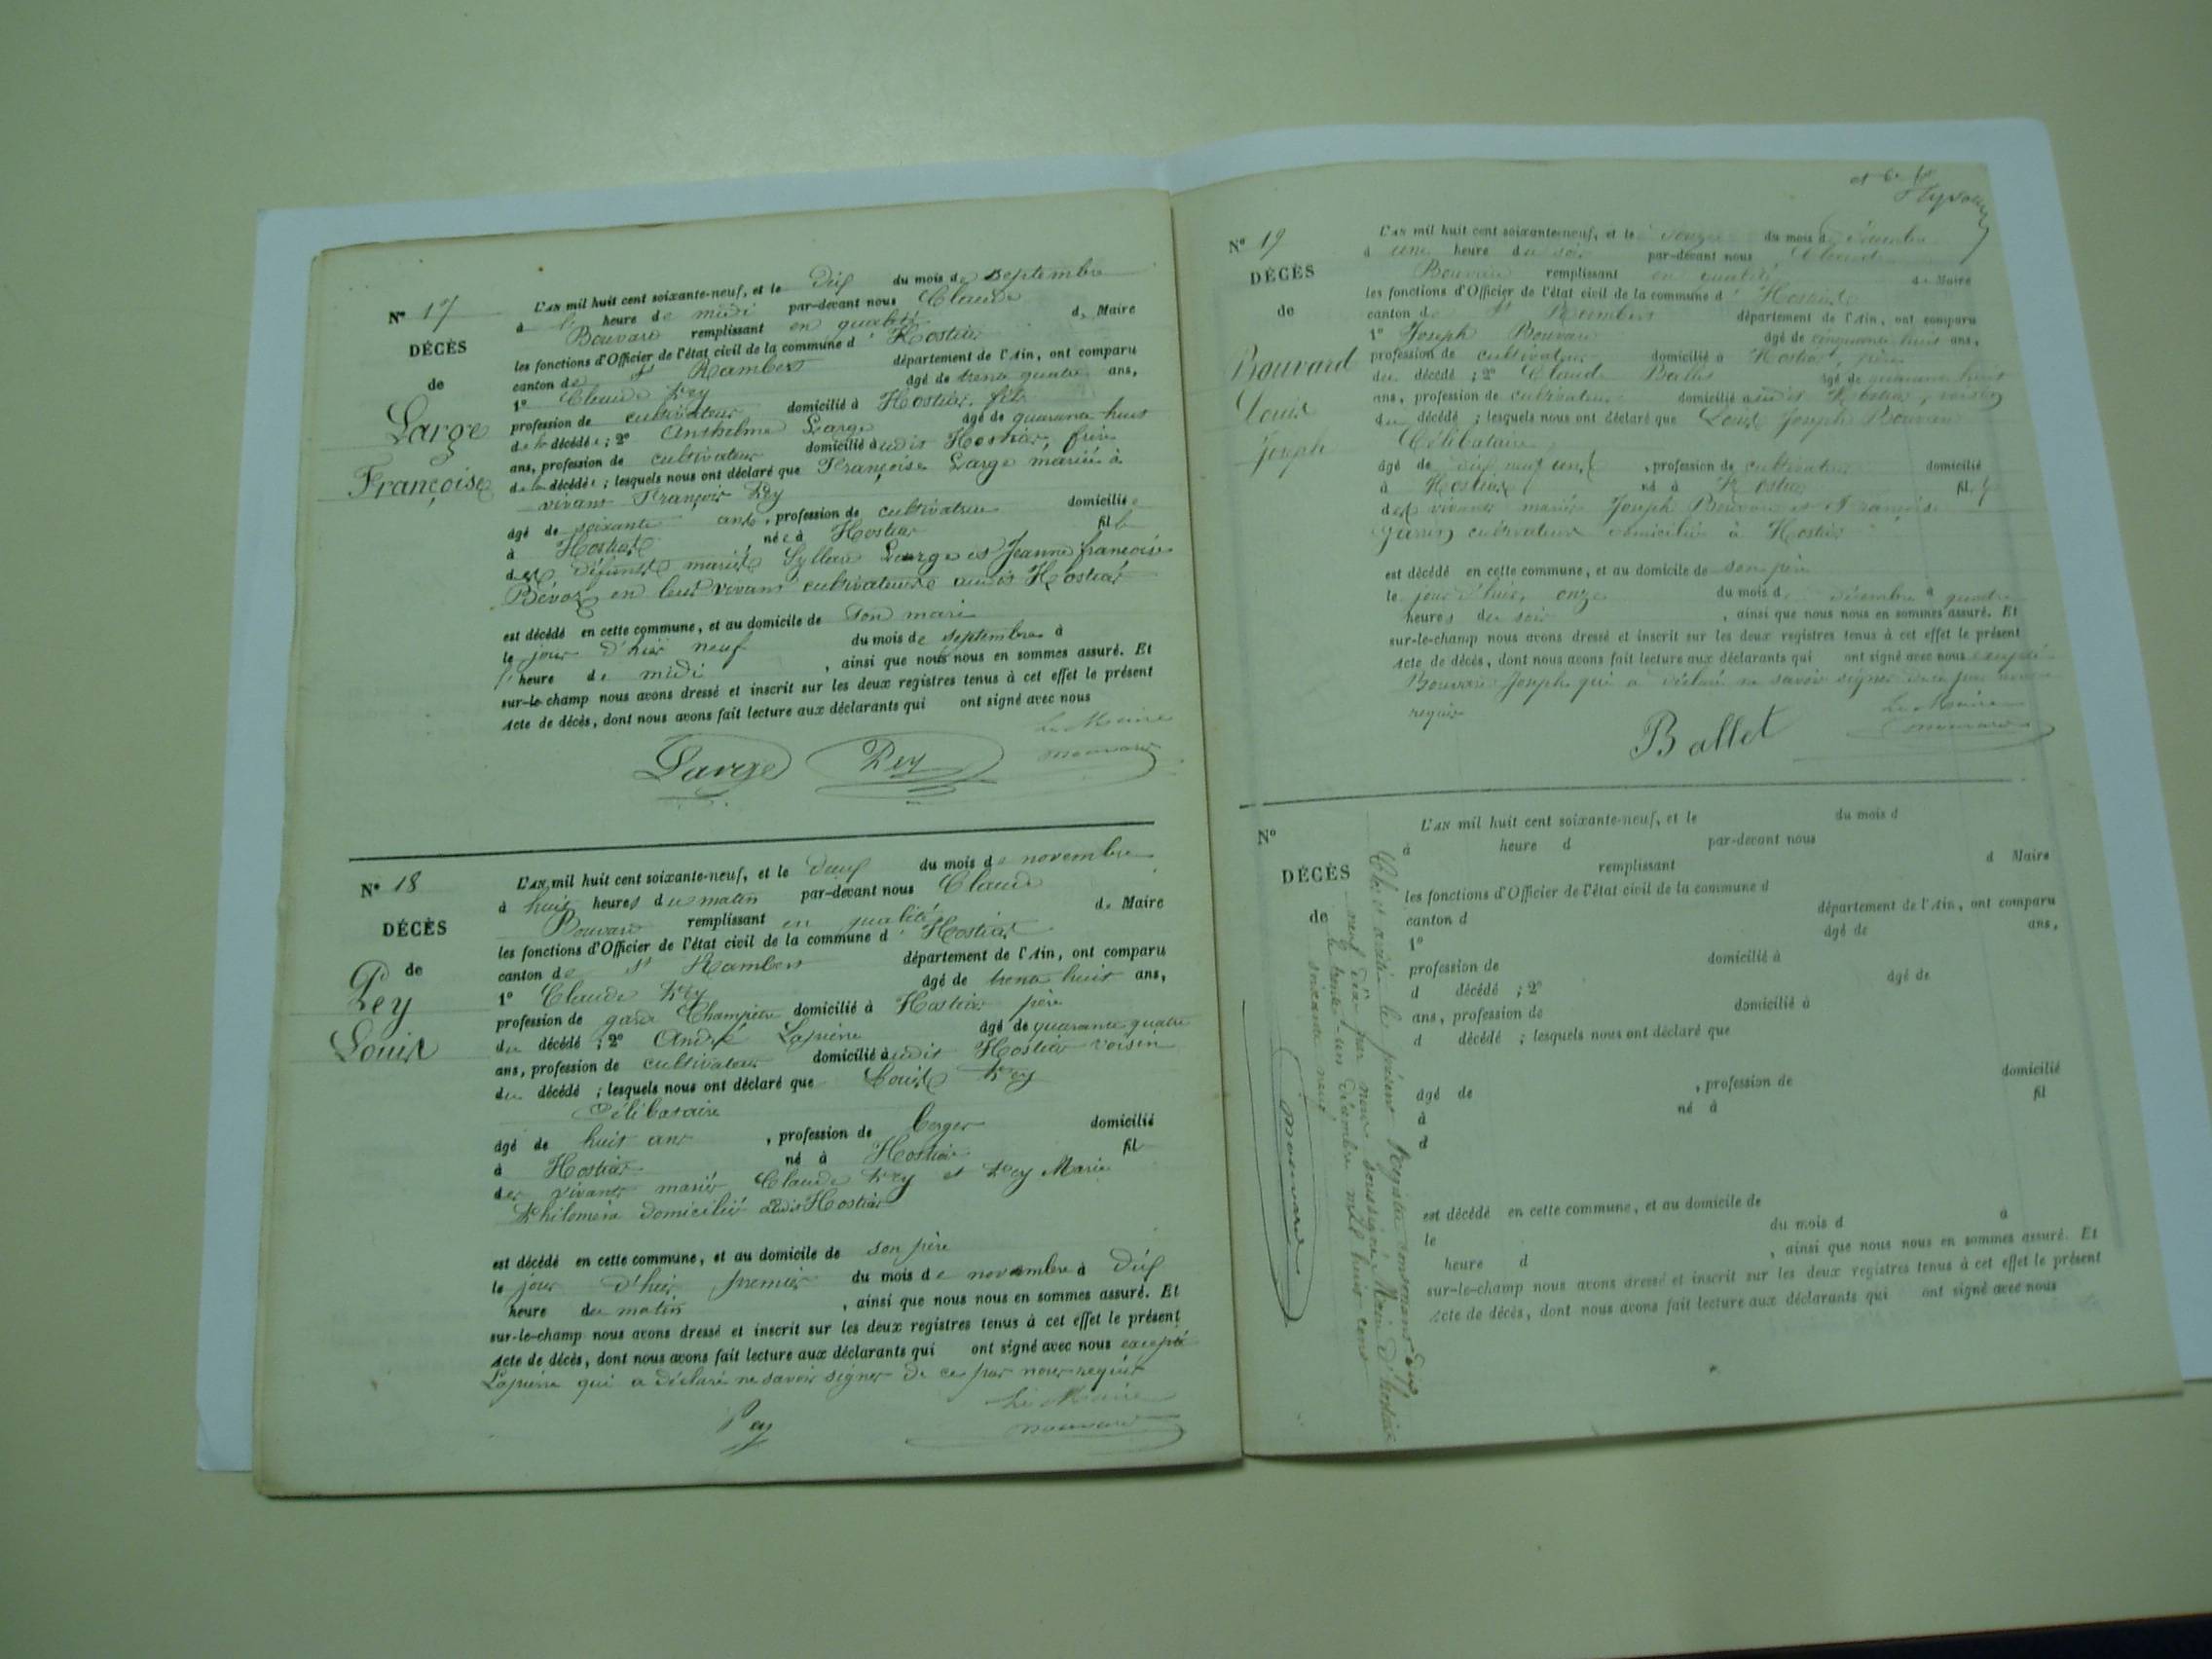 N° 17
DÉCÈS
de
Large
Françoise
L'AN mil huit cent soixante-neuf, et le Dix du mois de septembre
à heure de midi par-devant nous Claude
Bouvard remplissant en qualité de Maire
les fonctions d'Officier de l'état civil de la commune d' Hostias
canton de St Rambert département de l'Ain, ont comparu
1° Claude Pey âgé de trente quatre ans,
profession de cultivateur domicilié à Hostias, fils
de la décédée ; 2° Anthelme Large âgé de quarante huit
ans, profession de cultivateur domicilié audit Hostias, frère
de la décédée ; lesquels nous ont déclaré que Françoise Large mariée à
vivant François Pey
âgé de soixante ans, profession de cultivatrice domicilié
à Hostias, née à Hostias fille
des défunts mariés Large et Jeanne françoise
Bévoz en leur vivant cultivateurs audit Hostias
est décédé en cette commune, et au domicile de son mari
le jour d'hier neuf du mois de septembre à
1' heure de midi, ainsi que nous nous en sommes assuré. Et
sur-le-champ nous avons dressé et inscrit sur les deux registres tenus à cet effet le présent
Acte de décès, dont nous avons fait lecture aux déclarants qui ont signé avec nous
Le Maire
Large Pey Bouvard
N° 18
DÉCÈS
de
Pey
Louis
L'AN mil huit cent soixante-neuf, et le Deux du mois de novembre
à huit heures du matin par-devant nous Claude
Bouvard remplissant en qualité de Maire
les fonctions d'Officier de l'état civil de la commune d' Hostias
canton de St Rambert département de l'Ain, ont comparu
1° Claude Pey âgé de trente huit ans,
profession de garde Champêtre domicilié à Hostias père
du décédé ; 2° André Lapierre âgé de quarante quatre
ans, profession de cultivateur domicilié audit Hostias voisin
du décédé ; lesquels nous ont déclaré que Louis Pey
Célibataire
âgé de huit ans, profession de berger domicilié
à Hostias né à Hostias fils
des vivants mariés Claude Pey et Pey Marie
Philomène domiciliés audit Hostias
est décédé en cette commune, et au domicile de son père
le jour d'hier premier du mois de novembre à Dix
heure du matin, ainsi que nous nous en sommes assuré. Et
sur-le-champ nous avons dressé et inscrit sur les deux registres tenus à cet effet le présent
Acte de décès, dont nous avons fait lecture aux déclarants qui ont signé avec nous excepté
Lapierre qui a déclaré ne savoir signer de ce par nous requis
Le Maire
Pey Bouvard
N° 19
DÉCÈS
de
Bouvard
Louis
Joseph
L'AN mil huit cent soixante-neuf, et le Douze du mois de Décembre
à une heure du soir par-devant nous Claude
Bouvard remplissant en qualité de Maire
les fonctions d'Officier de l'état civil de la commune d' Hostias
canton de St Rambert département de l'Ain, ont comparu
1° Joseph Bouvard âgé de cinquante huit ans,
profession de cultivateur domicilié à Hostias, père
du décédé ; 2° Claude Ballet âgé de quarante huit
ans, profession de cultivateur domicilié audit Hostias, voisin
du décédé ; lesquels nous ont déclaré que Louis Joseph Bouvard
Célibataire
âgé de dix neuf ans, profession de cultivateur domicilié
à Hostias, né à Hostias fils
des vivants mariés Joseph Bouvard et Françoise
cultivateurs domiciliés à Hostias
est décédé en cette commune, et au domicile de son père
le jour d'hier, onze du mois de décembre à quatre
heures du soir, ainsi que nous nous en sommes assuré. Et
sur-le-champ nous avons dressé et inscrit sur les deux registres tenus à cet effet le présent
Acte de décès, dont nous avons fait lecture aux déclarants qui ont signé avec nous excepté
Bouvard Joseph qui a déclaré ne savoir signer de ce par nous
requis
Le Maire
Ballet Bouvard
N°
DÉCÈS
de
L'AN mil huit cent soixante-neuf, et le du mois d
à heure d par-devant nous
remplissant d Maire
les fonctions d'Officier de l'état civil de la commune d
canton d département de l'Ain, ont comparu
1° âgé de ans,
profession de domicilié à
d décédé ; 2° âgé de
ans, profession de domicilié à
d décédé ; lesquels nous ont déclaré que
âgé de , profession de domicilié
à né à fil
d
est décédé en cette commune, et au domicile de
le du mois d à
heure d , ainsi que nous nous en sommes assuré. Et
sur-le-champ nous avons dressé et inscrit sur les deux registres tenus à cet effet le présent
Acte de décès, dont nous avons fait lecture aux déclarants qui ont signé avec nous
Clos et arrêté le présent Registre contenant dix
neuf par nous soussigné Maire d'hostias
le trente-un décembre mil huit cent
soixante neuf
Bouvard